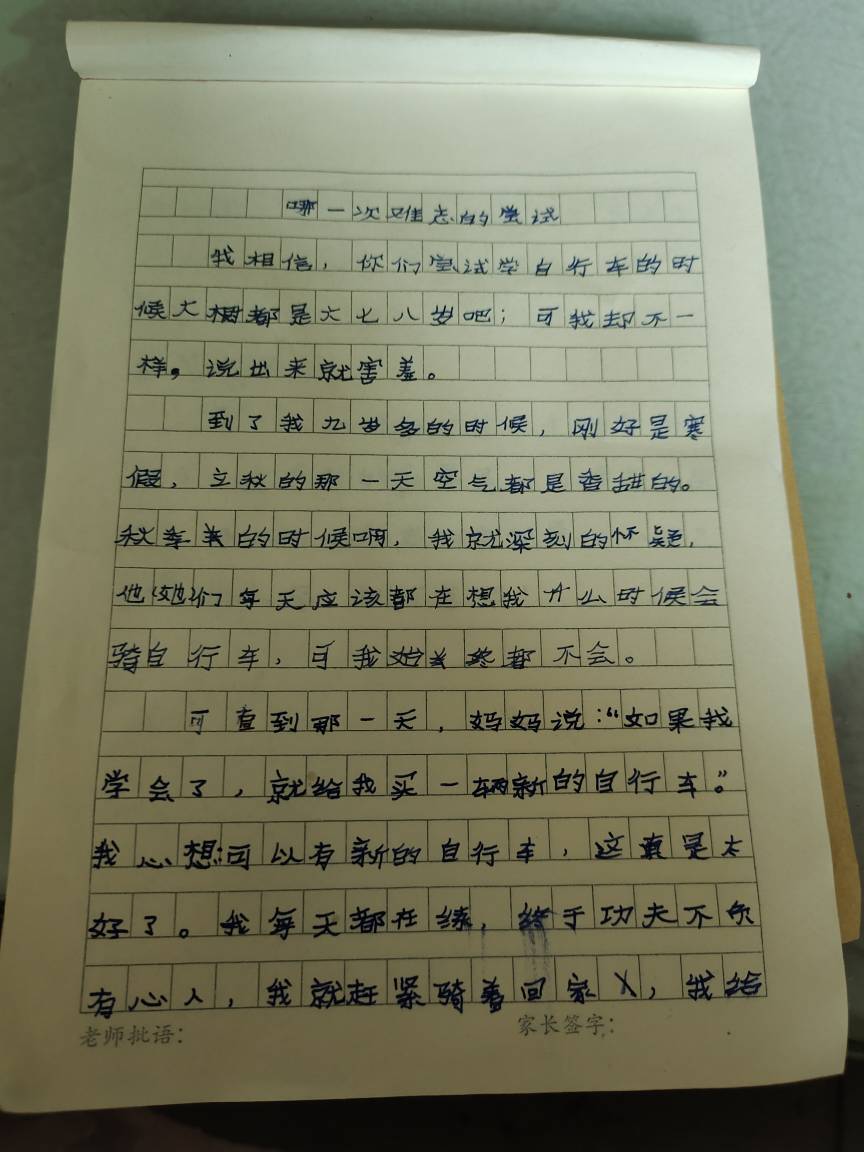 哪一次难忘的尝试
我相信，你们尝试学自行车的时
候大概都是六七八岁吧；可我却不一
样，说出来就害羞。
到了我九岁多的时候，刚好是寒
假，立秋的那一天空气都是香甜的。
秋季来的时候啊，我就深刻的怀疑，
他（她）们每天应该都在想我什么时候会
骑自行车，可我始终都不会。
可直到那一天，妈妈说：“如果我
学会了，就给我买一辆新的自行车。”
我心想：可以有新的自行车，这真是太
好了。我每天都在练，终于功夫不负
有心人，我就赶紧骑着回家，我给
老师批语：
家长签字：